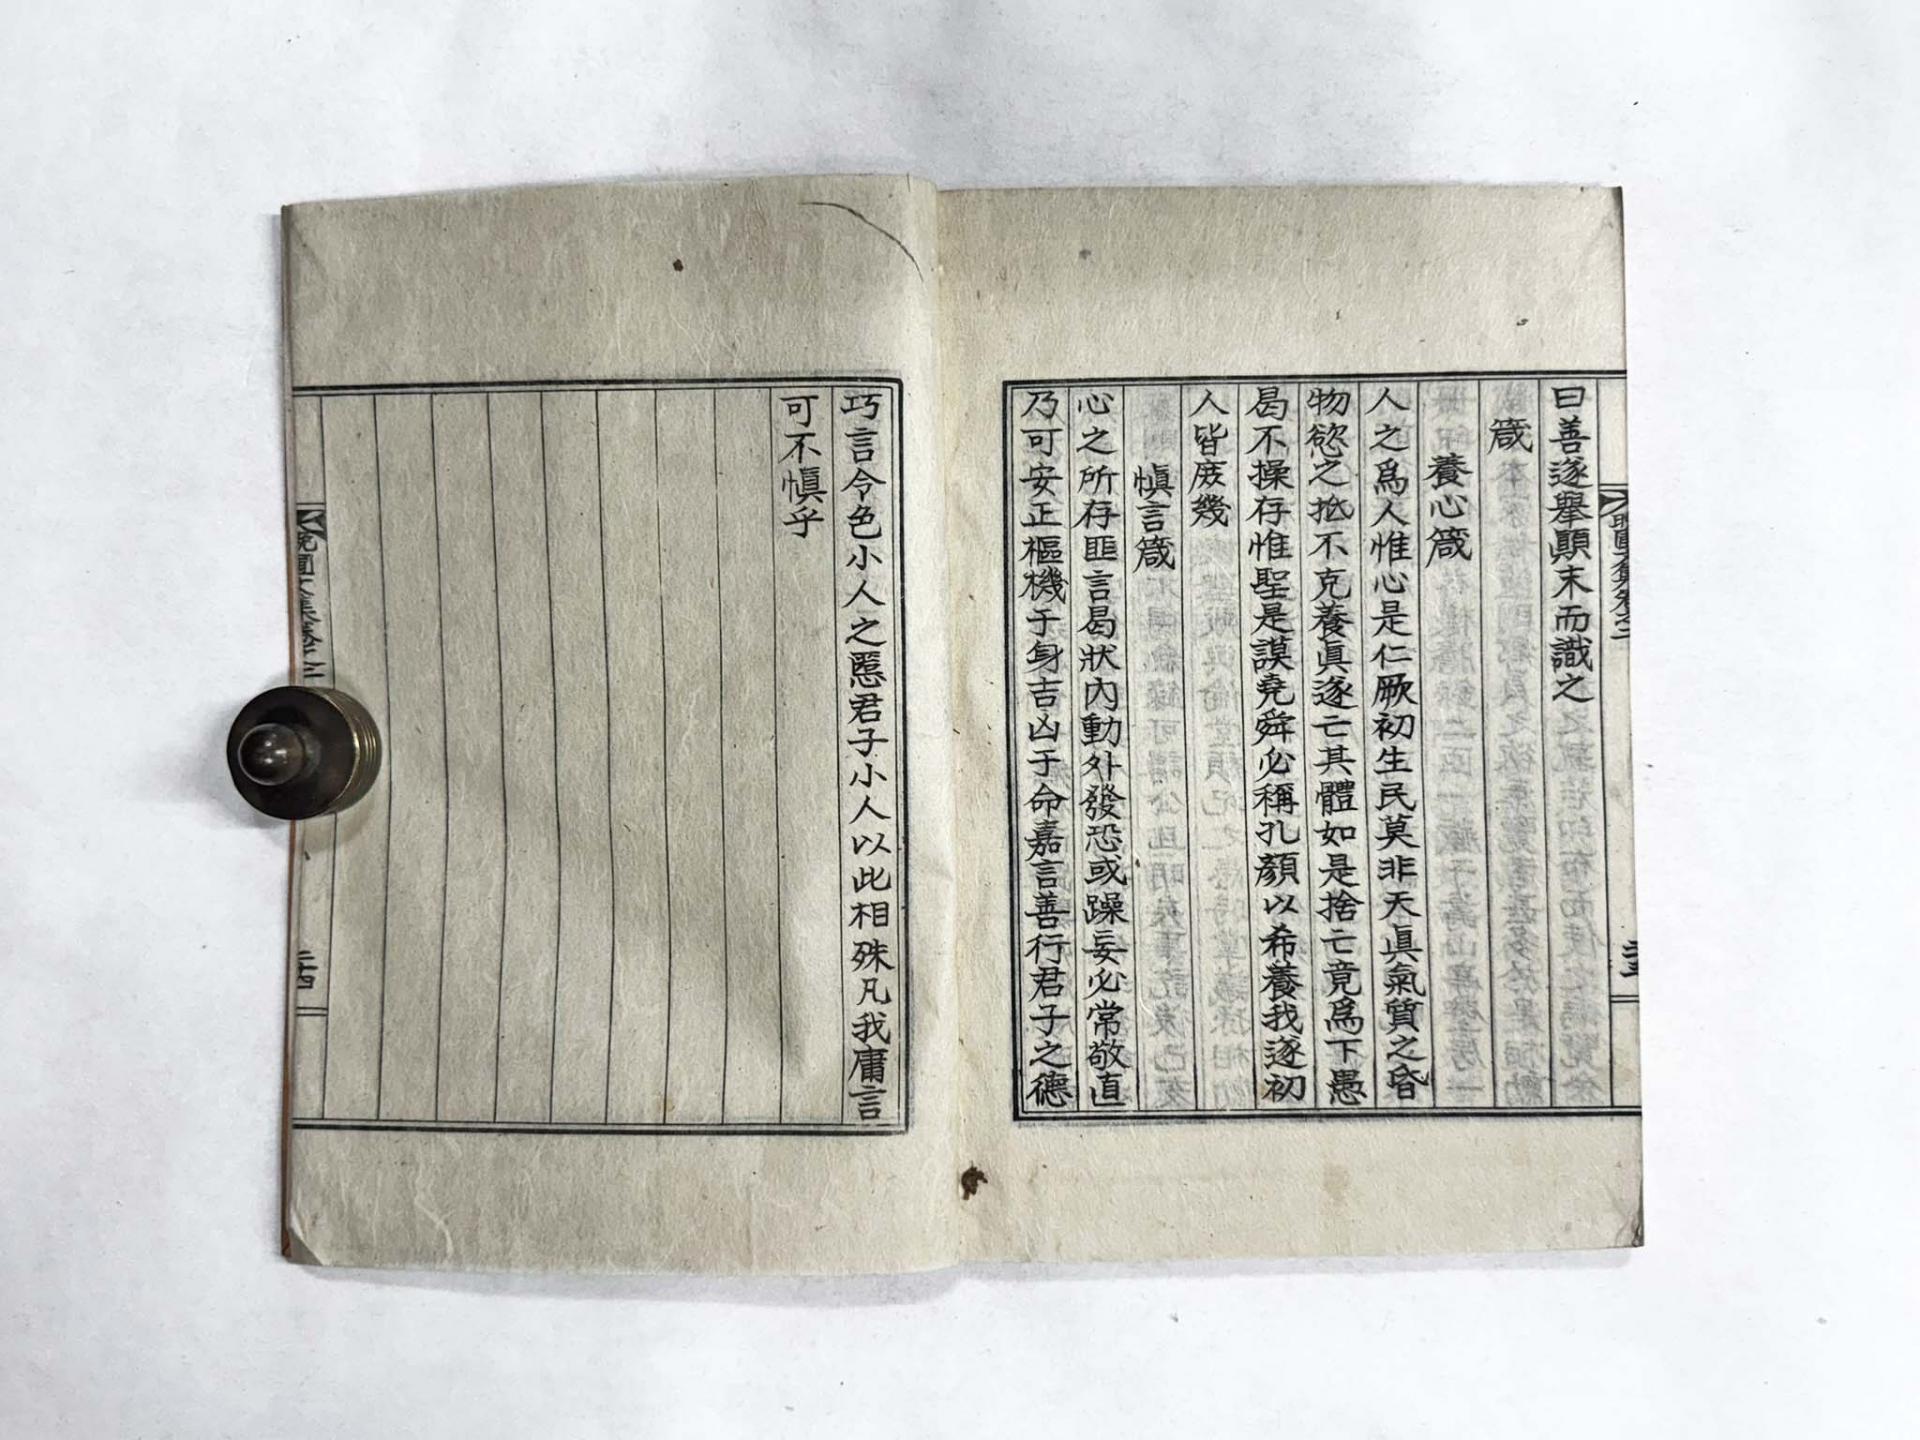 曰善遂舉顚末而識之
箴
養心箴
人之爲人惟心是仁厥初生民莫非天眞氣質之昏
物慾之抵不克養眞遂亡其體如是捨亡竟爲下愚
曷不操存惟聖是謨堯舜必稱孔顏以希養我遂初
人皆庶幾
愼言箴
心之所存匪言曷狀內動外發恐或躁妄必常敬直
乃可安正樞機于身吉凶于命嘉言善行君子之德
巧言令色小人之慝君子小人以此相殊凡我庸言
可不愼乎